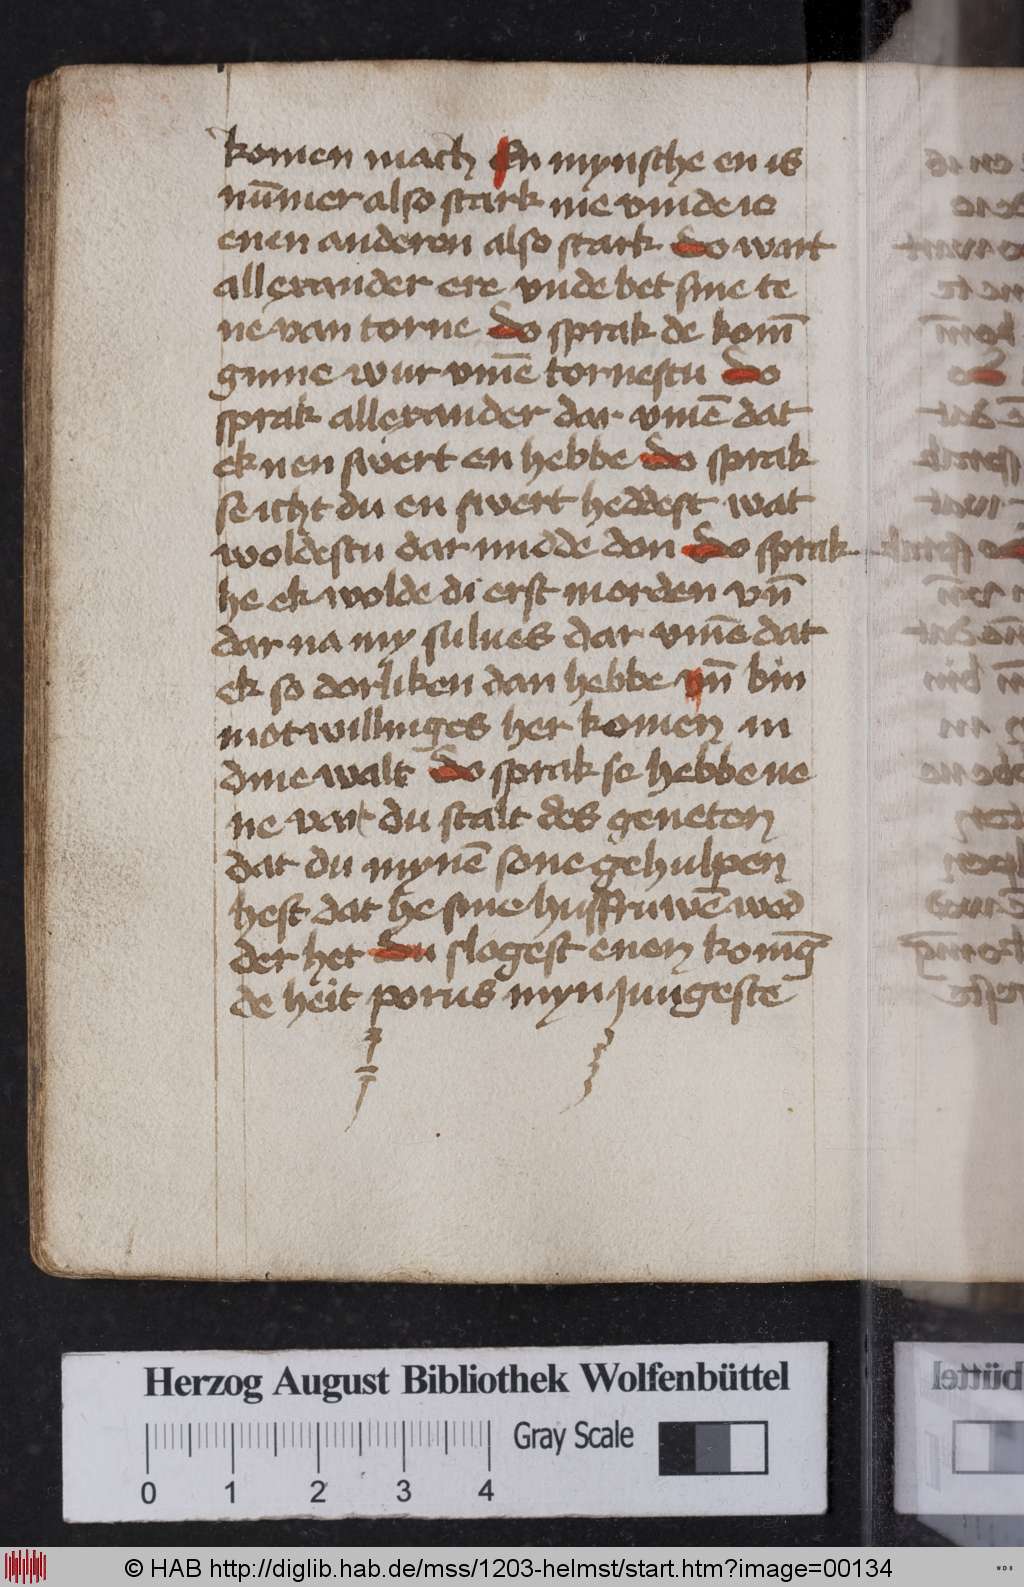 komen mach En mynsche en is
nūmer also stark me vinde io
enen anderen also stark do wart
allexander ere vnde bet sine te
ne van torne do sprak de konī
ginne wur vmē tornestu do
sprak allexander dar vmē dat
ek nen swert en hebbe do sprak
se icht du en swert heddest wat
woldestu dar midde don do sprak
he ek wolde di erst morden vn̄
dar na my sulues dar vmē dat
ek so dorliken dan hebbe vn̄ bin
motwillinges her komen in
dine walt do sprak se hebbe ne
ne vart du stalt des geneten
dat du mynē sone gehulpen
hest dat he sine husfruwē wed
der het du slogest enen konīg
de heit porus myn jungeste
Herzog August Bibliothek Wolfenbüttel
Gray Scale
0 1 2 3 4
© HAB http://diglib.hab.de/mss/1203-helmst/start.htm?image=00134